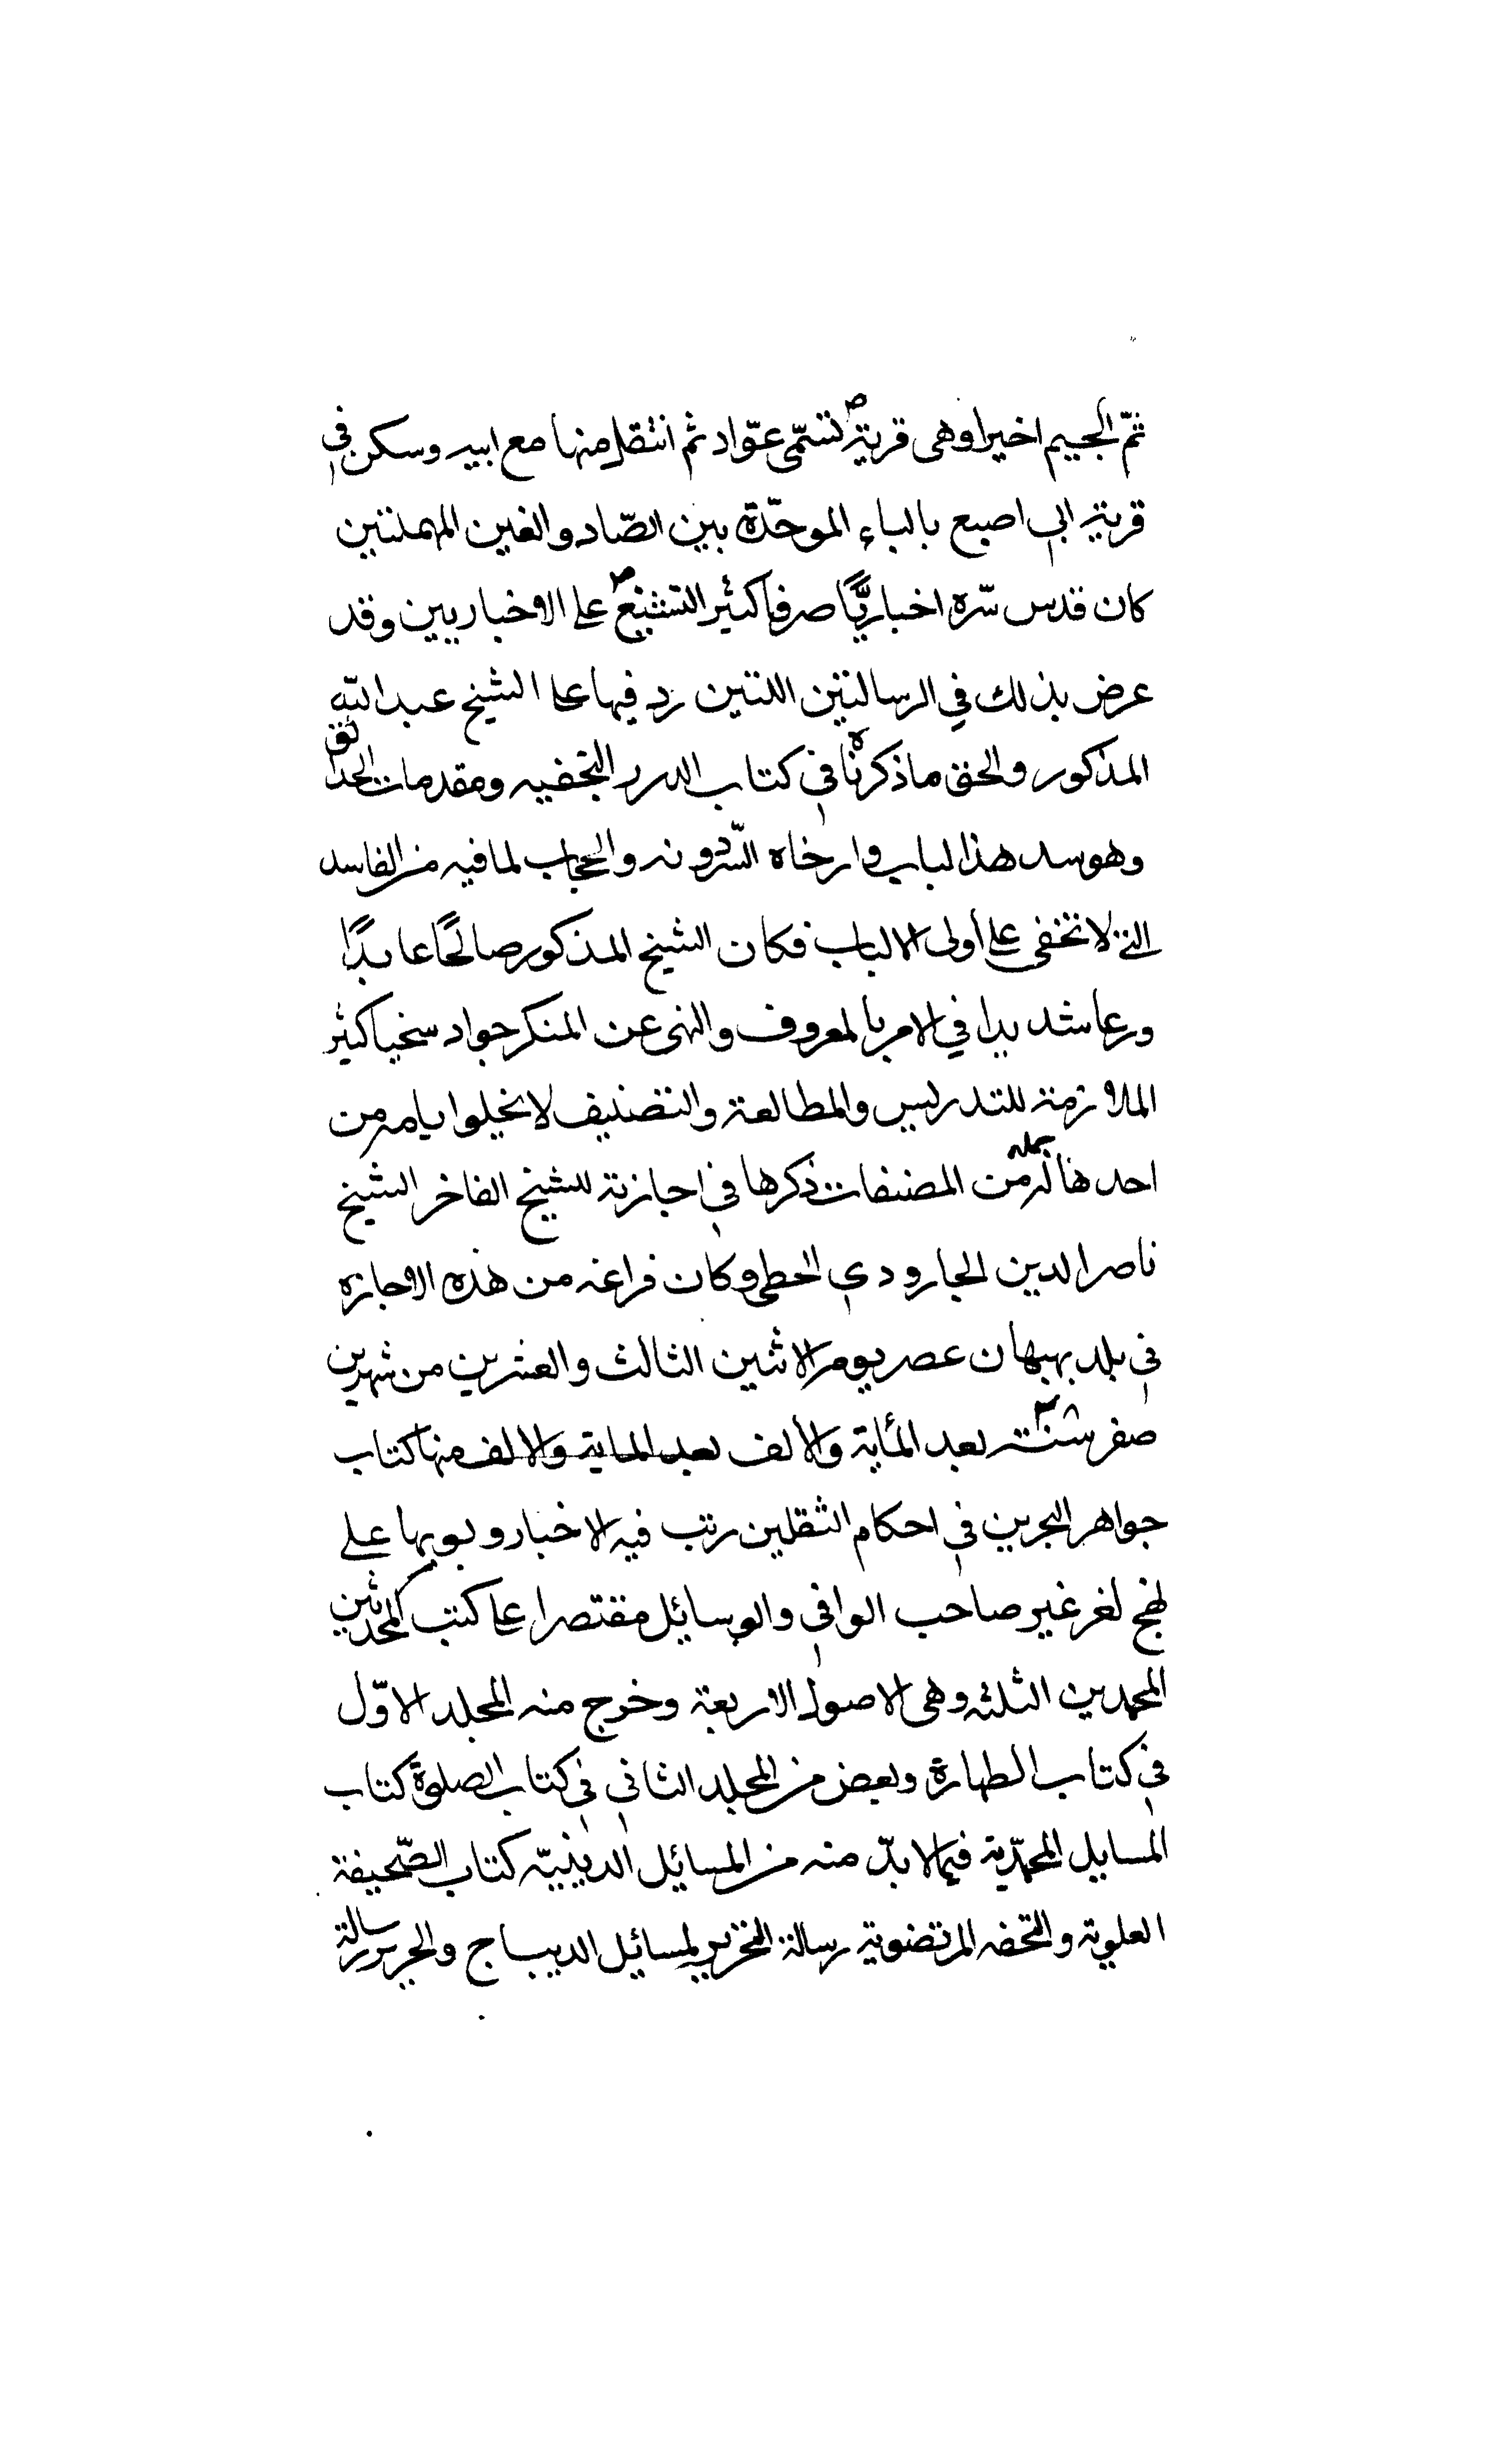 ثمّ الجيم اخيرا وهى قرية تسمّى عوّاد ثم انتقل منها مع ابيه وسكن في
قرية ابى اصبع بالباء الموحّدة بين الصّاد والغين المهملتين
كان قدس سّره اخباريًّا صرفا كثير التشنيع على الاخباريين وقد
عرض بذلك في الرسالتين اللتين رد فيها على الشيخ عبد اللّه
المذكور والحق ما ذكرناه في كتاب الدرر النجفيه ومقدمات الحدائق
وهو سد هذا لباب وارخاه السّردونه والحجاب لما فيه من الفاسد
التى لا تخفى على أولى الالباب فكان الشيخ المذكور صالحًا عابدًا
ورعا شديدا في الامر بالمعروف والنهى عن المنكر جواد سخيا كثير
الملازمة للتدريس والمطالعة والتصنيف لا يخلوا يامه من
احدها له جمله من المصنفات ذكرها في اجازته للشيخ الفاخر الشيخ
ناصر الدين الجارودي الخطى وكان فراغه من هذه الاجازه
في بلد بهبهان عصر يوم الاثنين الثالث والعشرين من شهرين
صفر سنة بعد المأية والألف بعد الماية والالف منها كتاب
جواهر البحرين في احكام الثقلين رتب فيه الاخبار وبوبها على
نهج لغر غير صاحب الوافى والوسائل مقتصرا على كتب المحدثين
المحمدين الثلثه وهى الاصول الاربعة وخرج منه المجلد الاوّل
في كتاب الطهارة وبعض من المجلد الثاني في كتاب الصلوة كتاب
المسايل المحمّدية فيما لابدّ منه من المسائل الدينيّه كتاب الصّحيفة
العلوية والتحفه المرتضوية رسالة التحرير لمسائل الديباج والحرير رسالة